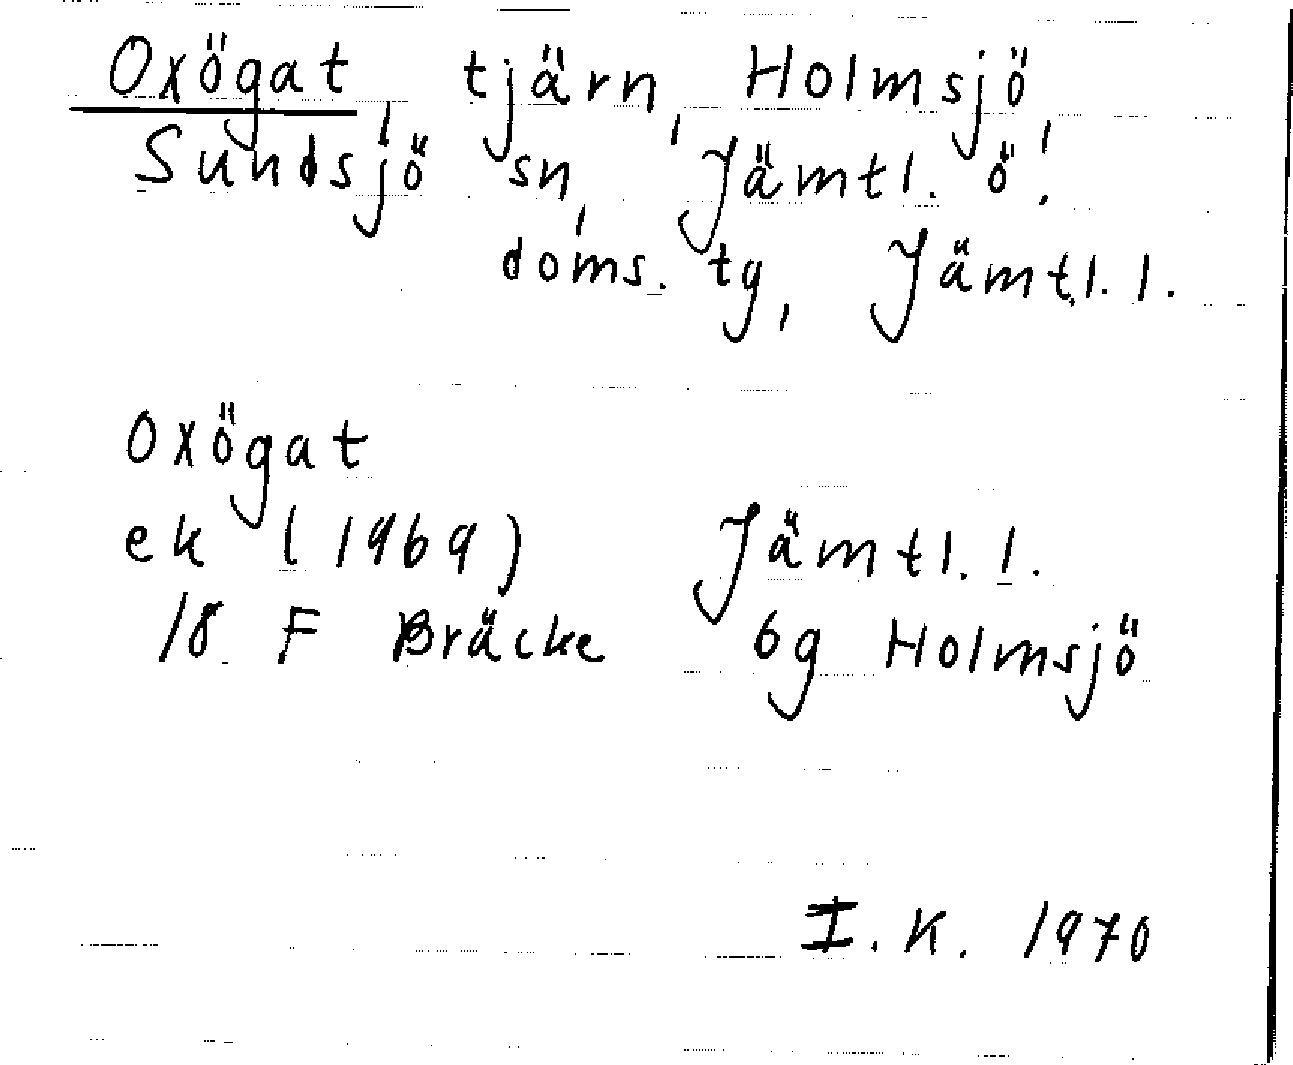 Oxögat, tjärn, Holmsjö,
Sundsjö sn, Jämtl. ö.
doms. tg, Jämtl. l.
Oxögat
ek (1969) Jämtl. l.
18 F Bräcke 6g Holmsjö
I. K. 1970